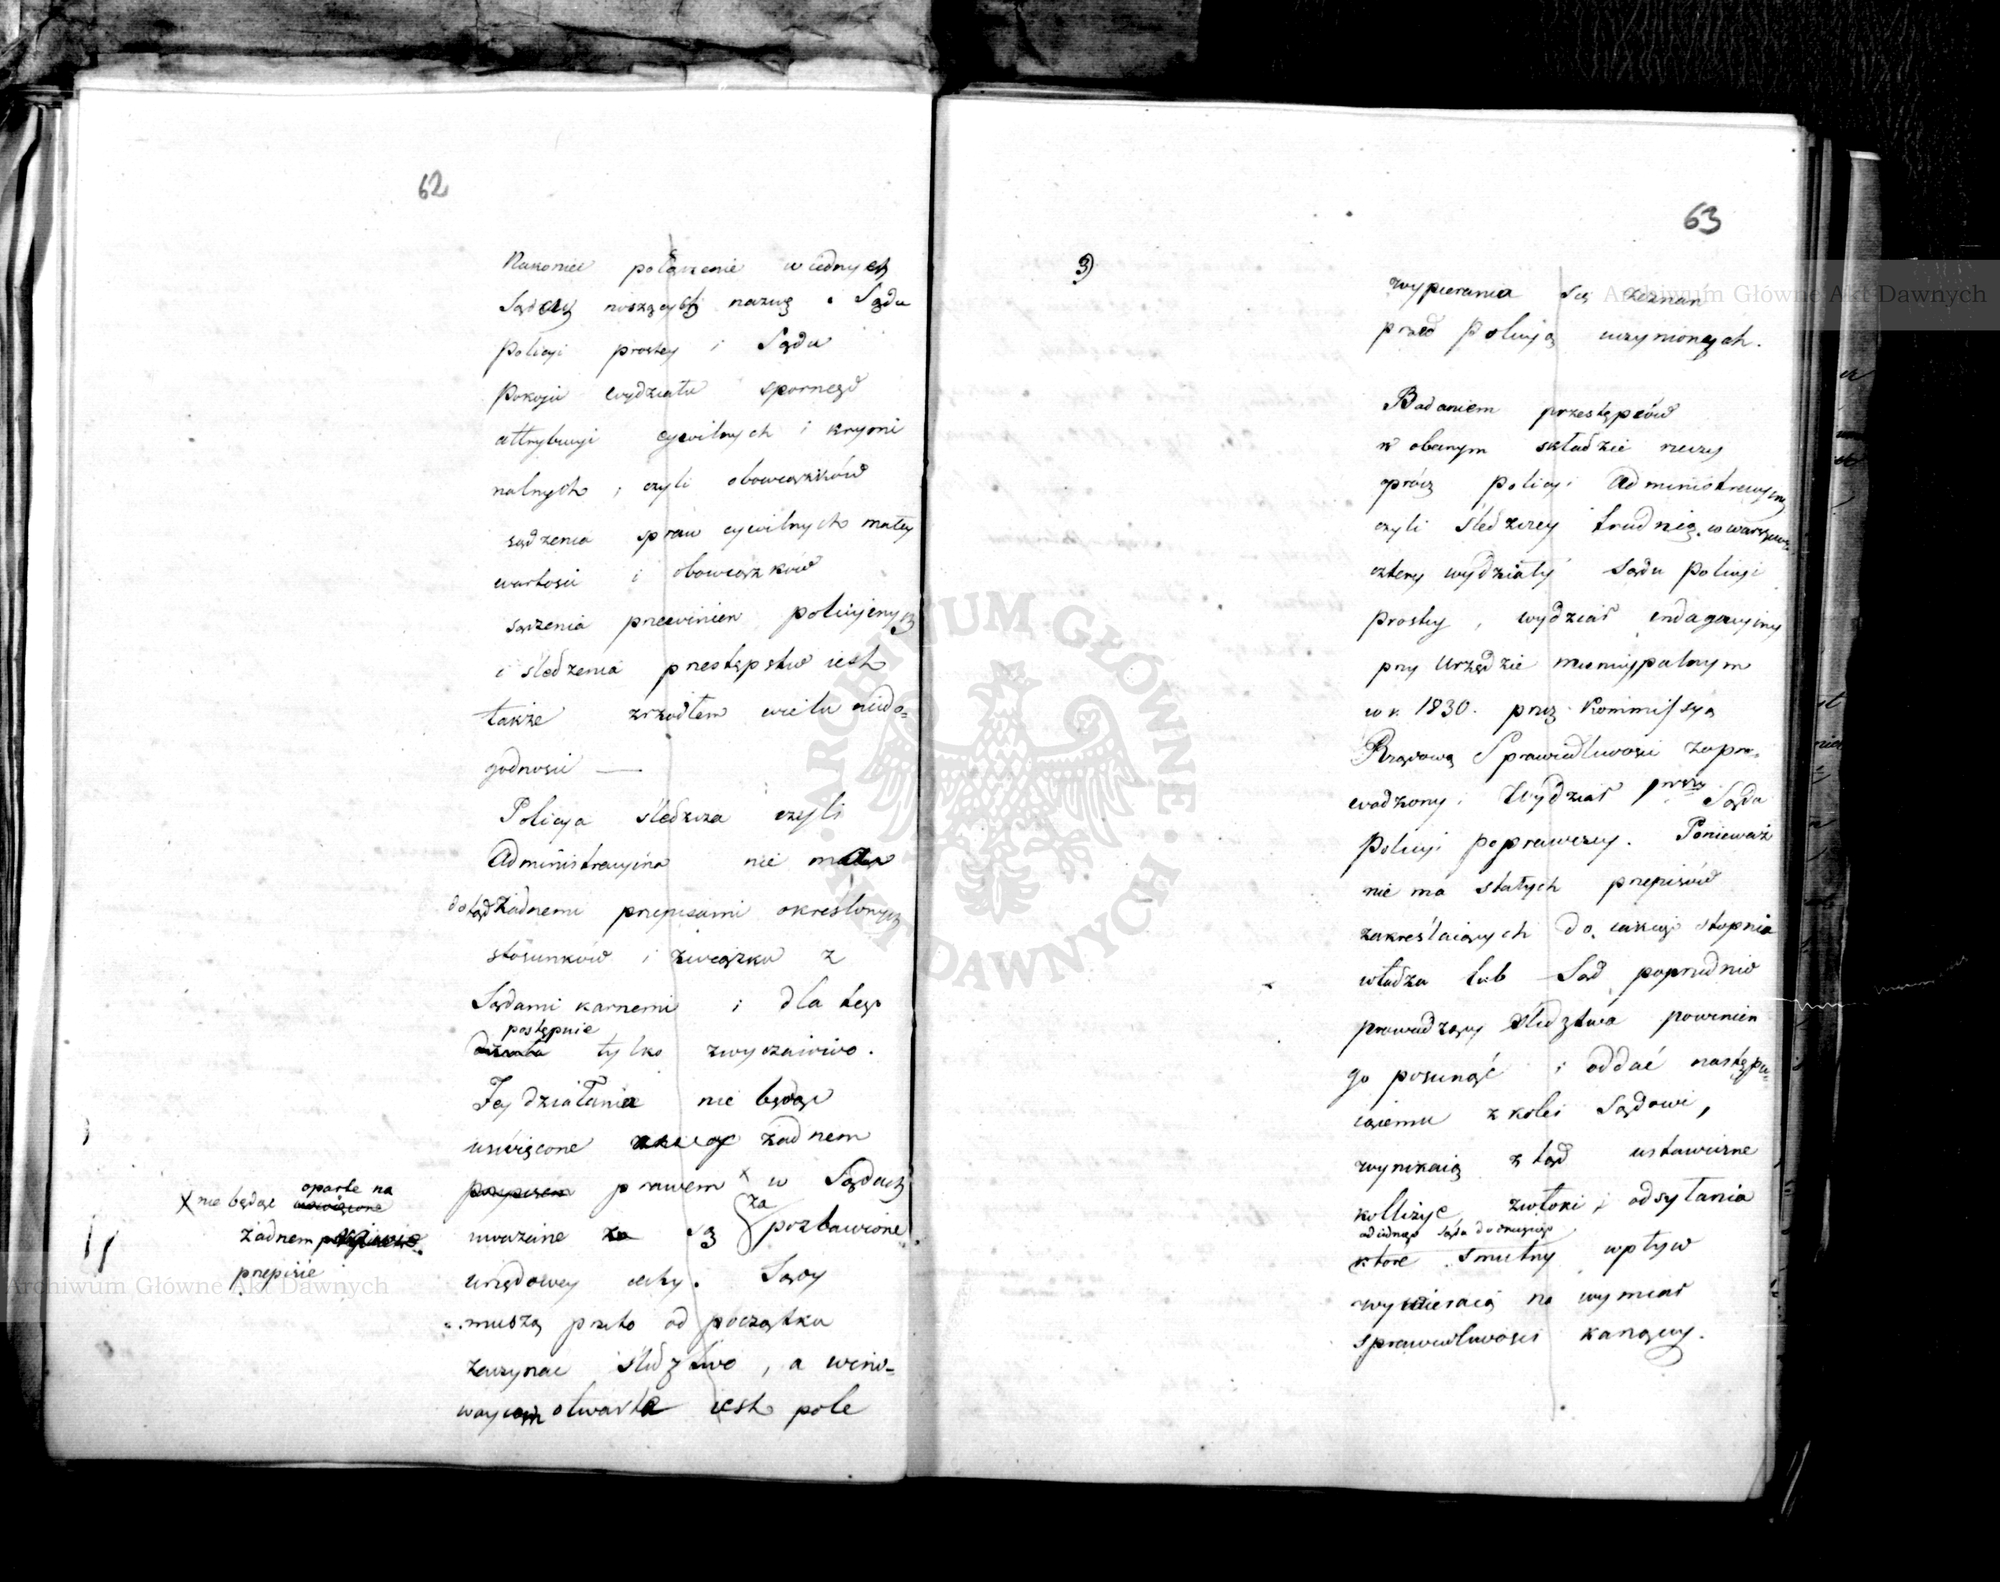 62
Nakoniec połączenie w iednych
Sądach noszących nazwę Sądu
Policyi prostey i Sądu
Pokoju wydziału spornego
attrybucyi cywilnych i krymi
nalnych, czyli obowiązków
sądzenia spraw cywilnych małey
wartosci i obowiązków
sądzenia przewinien policyjnych
i śledzenia przestępstw iest
także zrzodłem wielu niedo-
godnosci —
Policya śledcza czyli
Administracyina nie ma
dotąd żadnemi przepisami okreslonych
stósunków i związku z
Sądami karnemi i dla tego
postępuie
działa tylko zwyczaiowo.
Jey działania nie będąc
uswięcone żadnem
przepisem prawem x w Sądach
uważane za są za pozbawione
urzędowey cechy. Sądy
muszą przeto od początku
zaczynac śledztwo, a wino-
waycom otwarte iest pole
x nie będąc oparte na
uswięcone
żadnem
przepisie
3)
63
wypierania się zeznan
przed Policyą uczynionych.
Badaniem przestępców
w obecnym składzie rzeczy
oprócz Policyi Administracyiney
czyli śledczey trudnią w Warszawie
cztery wydziały Sądu Policyi
prostey, wydział indagacyiny
przy Urzędzie municypalnym
w r. 1830. przez Kommissyą
Rządową Sprawiedliwosci zapro-
wadzony i Wydział przy Sądu
Policyi poprawczey. Ponieważ
nie ma stałych przepisów
zakreślaiących do iakiego stopnia
władza lub Sąd poprzednio
prowadzący śledztwa powinien
go posunąć i oddać następu-
iącemu z kolei Sądowi,
wynikaią z tąd ustawiczne
kollizye zwłoki, i odsyłania
od iednego Sądu do drugiego
które smutny wpływ
wywieraią na wymiar
sprawiedliwości karzącey.
Archiwum Główne Akt Dawnych
Archiwum Główne Akt Dawnych
ARCHIWUM GŁÓWNE AKT DAWNYCH